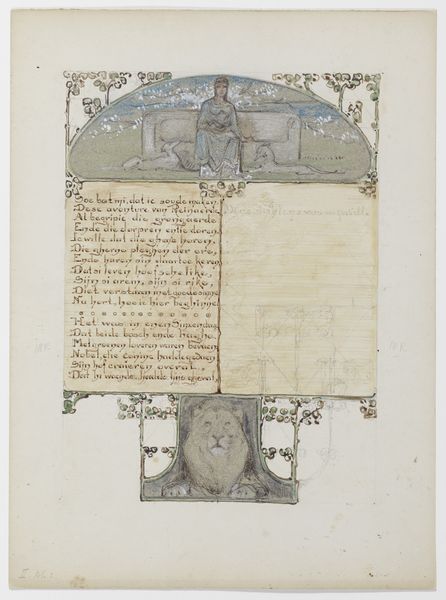 Soe bat mi, dat ic soude maken
Dese avonture van Reinaerde.
Al begripic die grongaerde
Ende die dorpren entie doren,
Ic wille dat die ghene horen,
Die gherne pleghen der eren,
Ende haren sin daartoe keren
Dat si leven hoofschelike,
Sijn si arem, sijn si rike,
Diet verstaen met goeden sinne
Nu hort, hoe ic hier beghinne
Het was in enen Sinxendag
Dat beide bosch ende haghe
Met groenen loveren waren bevaen
Nobel, die coninc hadde gedaen
Sijn hof craieren overal
Dat hi waende, hadde hijs gheval